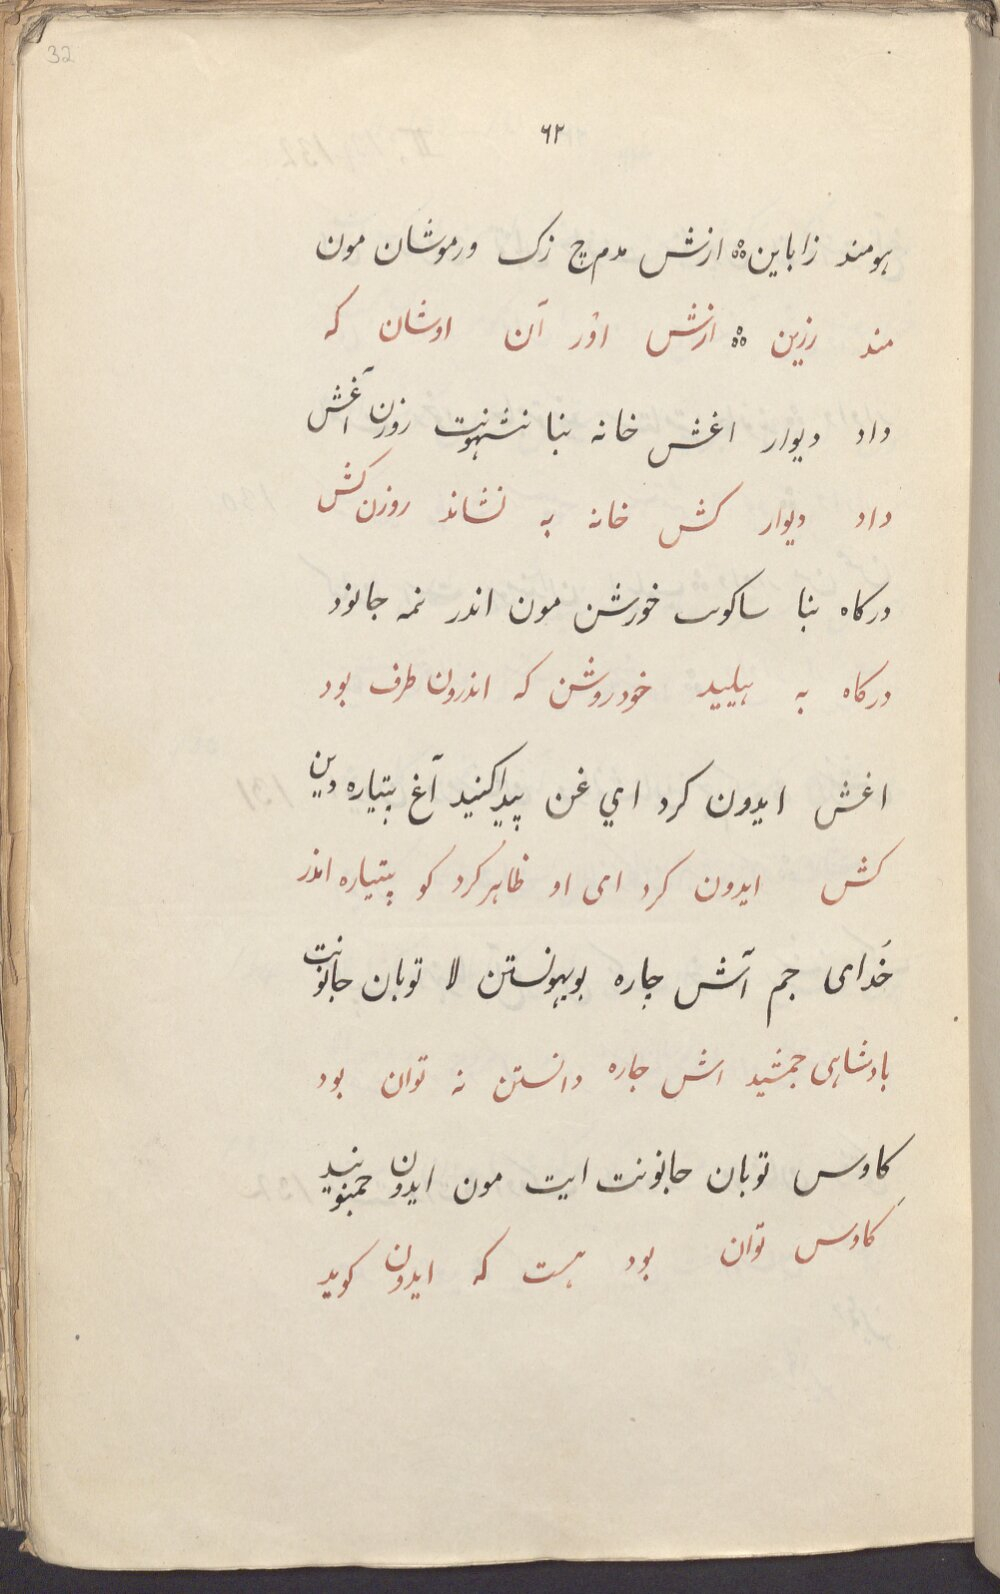 32
٦٢
هومند زاباین ؞ ازش مدم چ زک ورموشان مون
مند رزین ؞ ازش اوُر آن اوشان که
داد دیوار اغش خانه بنا نشهونیت روزن آغش
داد دیوار کش خانه به نشاند روزن کش
درکاه بنا ساکوس خورشن مون اندر نمه جانوٚد
درکاه به هیلید خود روشن که اندرون طرف بود
اغش ایدون کرد اي غن پیداکنید آغ پتیاره دین
کش ایدون کرد ای او ظاهر کرد کو پتیاره اندر
خَدای جم آش چاره بویهونستن لا توبان جانونت
بادشاهی جمشید اش چاره دانستن نه توان بود
کاوس توبان جانونت ایت مون ایدون جمنونید
کاوس توان بود هست که ایدون کوید